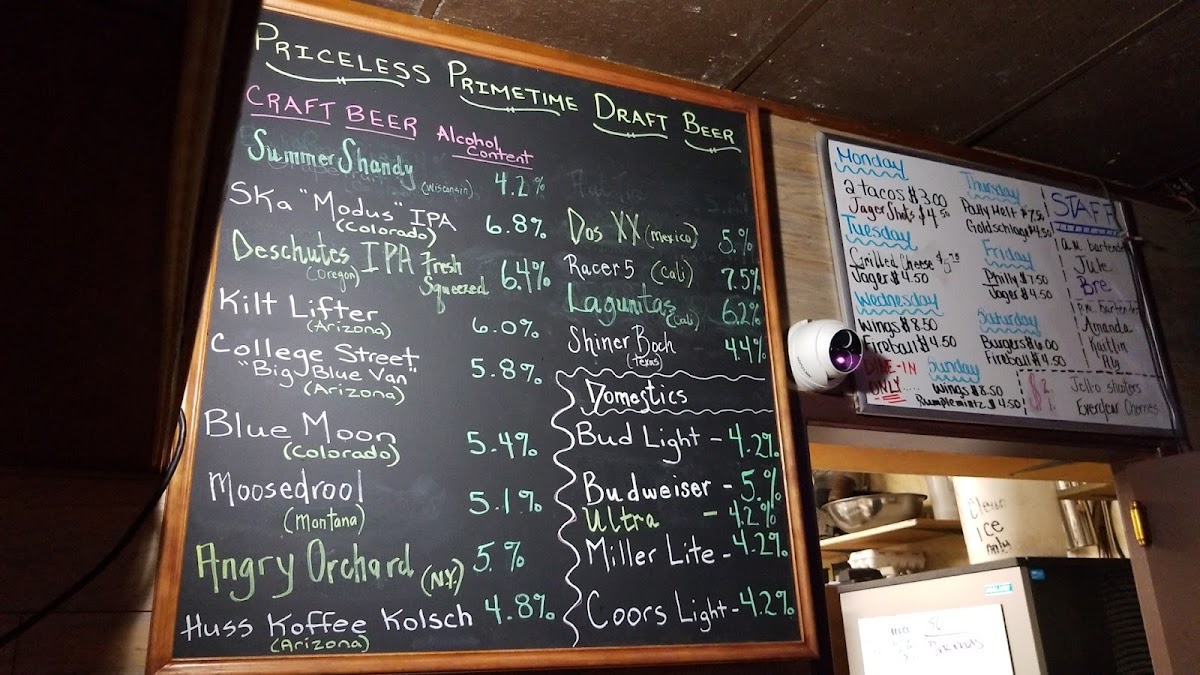 PRICELESS PRIMETIME DRAFT BEER
CRAFT BEER Alcohol Content
Summer Shandy (Wisconsin) 4.2%
SKa "Modus" IPA 6.8%
(Colorado)
Deschutes IPA Fresh Squeezed 6.4%
(Oregon)
Kilt Lifter 6.0%
(Arizona)
College Street
"Big Blue Van" 5.8%
(Arizona)
Blue Moon 5.4%
(Colorado)
Moosedrool 5.1%
(Montana)
Angry Orchard (N.Y.) 5.%
Huss Koffee Kolsch 4.8%
(Arizona)
Dos XX (Mexico) 5.%
Racer 5 (Cali) 7.5%
Lagunitas (Cali) 6.2%
Shiner Boch 4.4%
(Texas)
Domestics
Bud Light - 4.2%
Budweiser - 5.%
Ultra - 4.2%
Miller Lite - 4.2%
Coors Light - 4.2%
Monday
2 tacos $3.00
Jager Shots $4.50
Tuesday
Grilled Cheese
Jager $4.50
Wednesday
Wings $8.50
Fireball $4.50
DINE-IN
ONLY
Thursday
Patty Melt $7.50
Goldschlager $4.50
Friday
Philly $7.50
Jager $4.50
Saturday
Burgers $6.00
Fireball $4.50
Sunday
Wings $8.50
Rumplemintz $4.50
STAFF
a.m. bartender
Jule
Bre
p.m. bartender
Amanda
Kaitlin
Aly
$2
Jello shooters
Everclear Cherries
Clean
ICE
Only